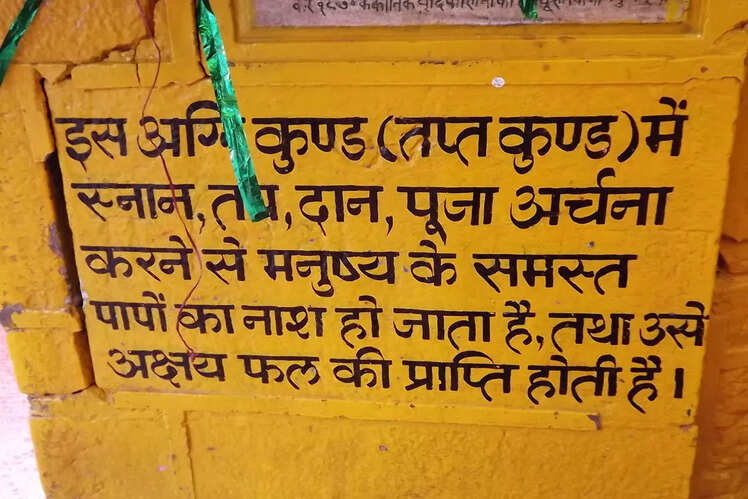 इस अग्नि कुण्ड (तप्त कुण्ड) में
स्नान, तप, दान, पूजा अर्चना
करने से मनुष्य के समस्त
पापों का नाश हो जाता है, तथा उसे
अक्षय फल की प्राप्ति होती है।